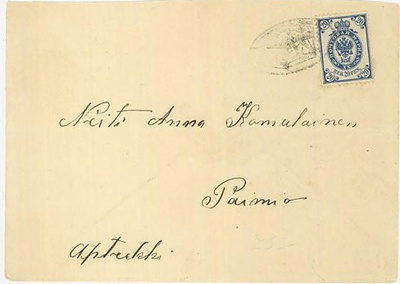 Neiti Anna Komulainen
Paimio
Apteekki